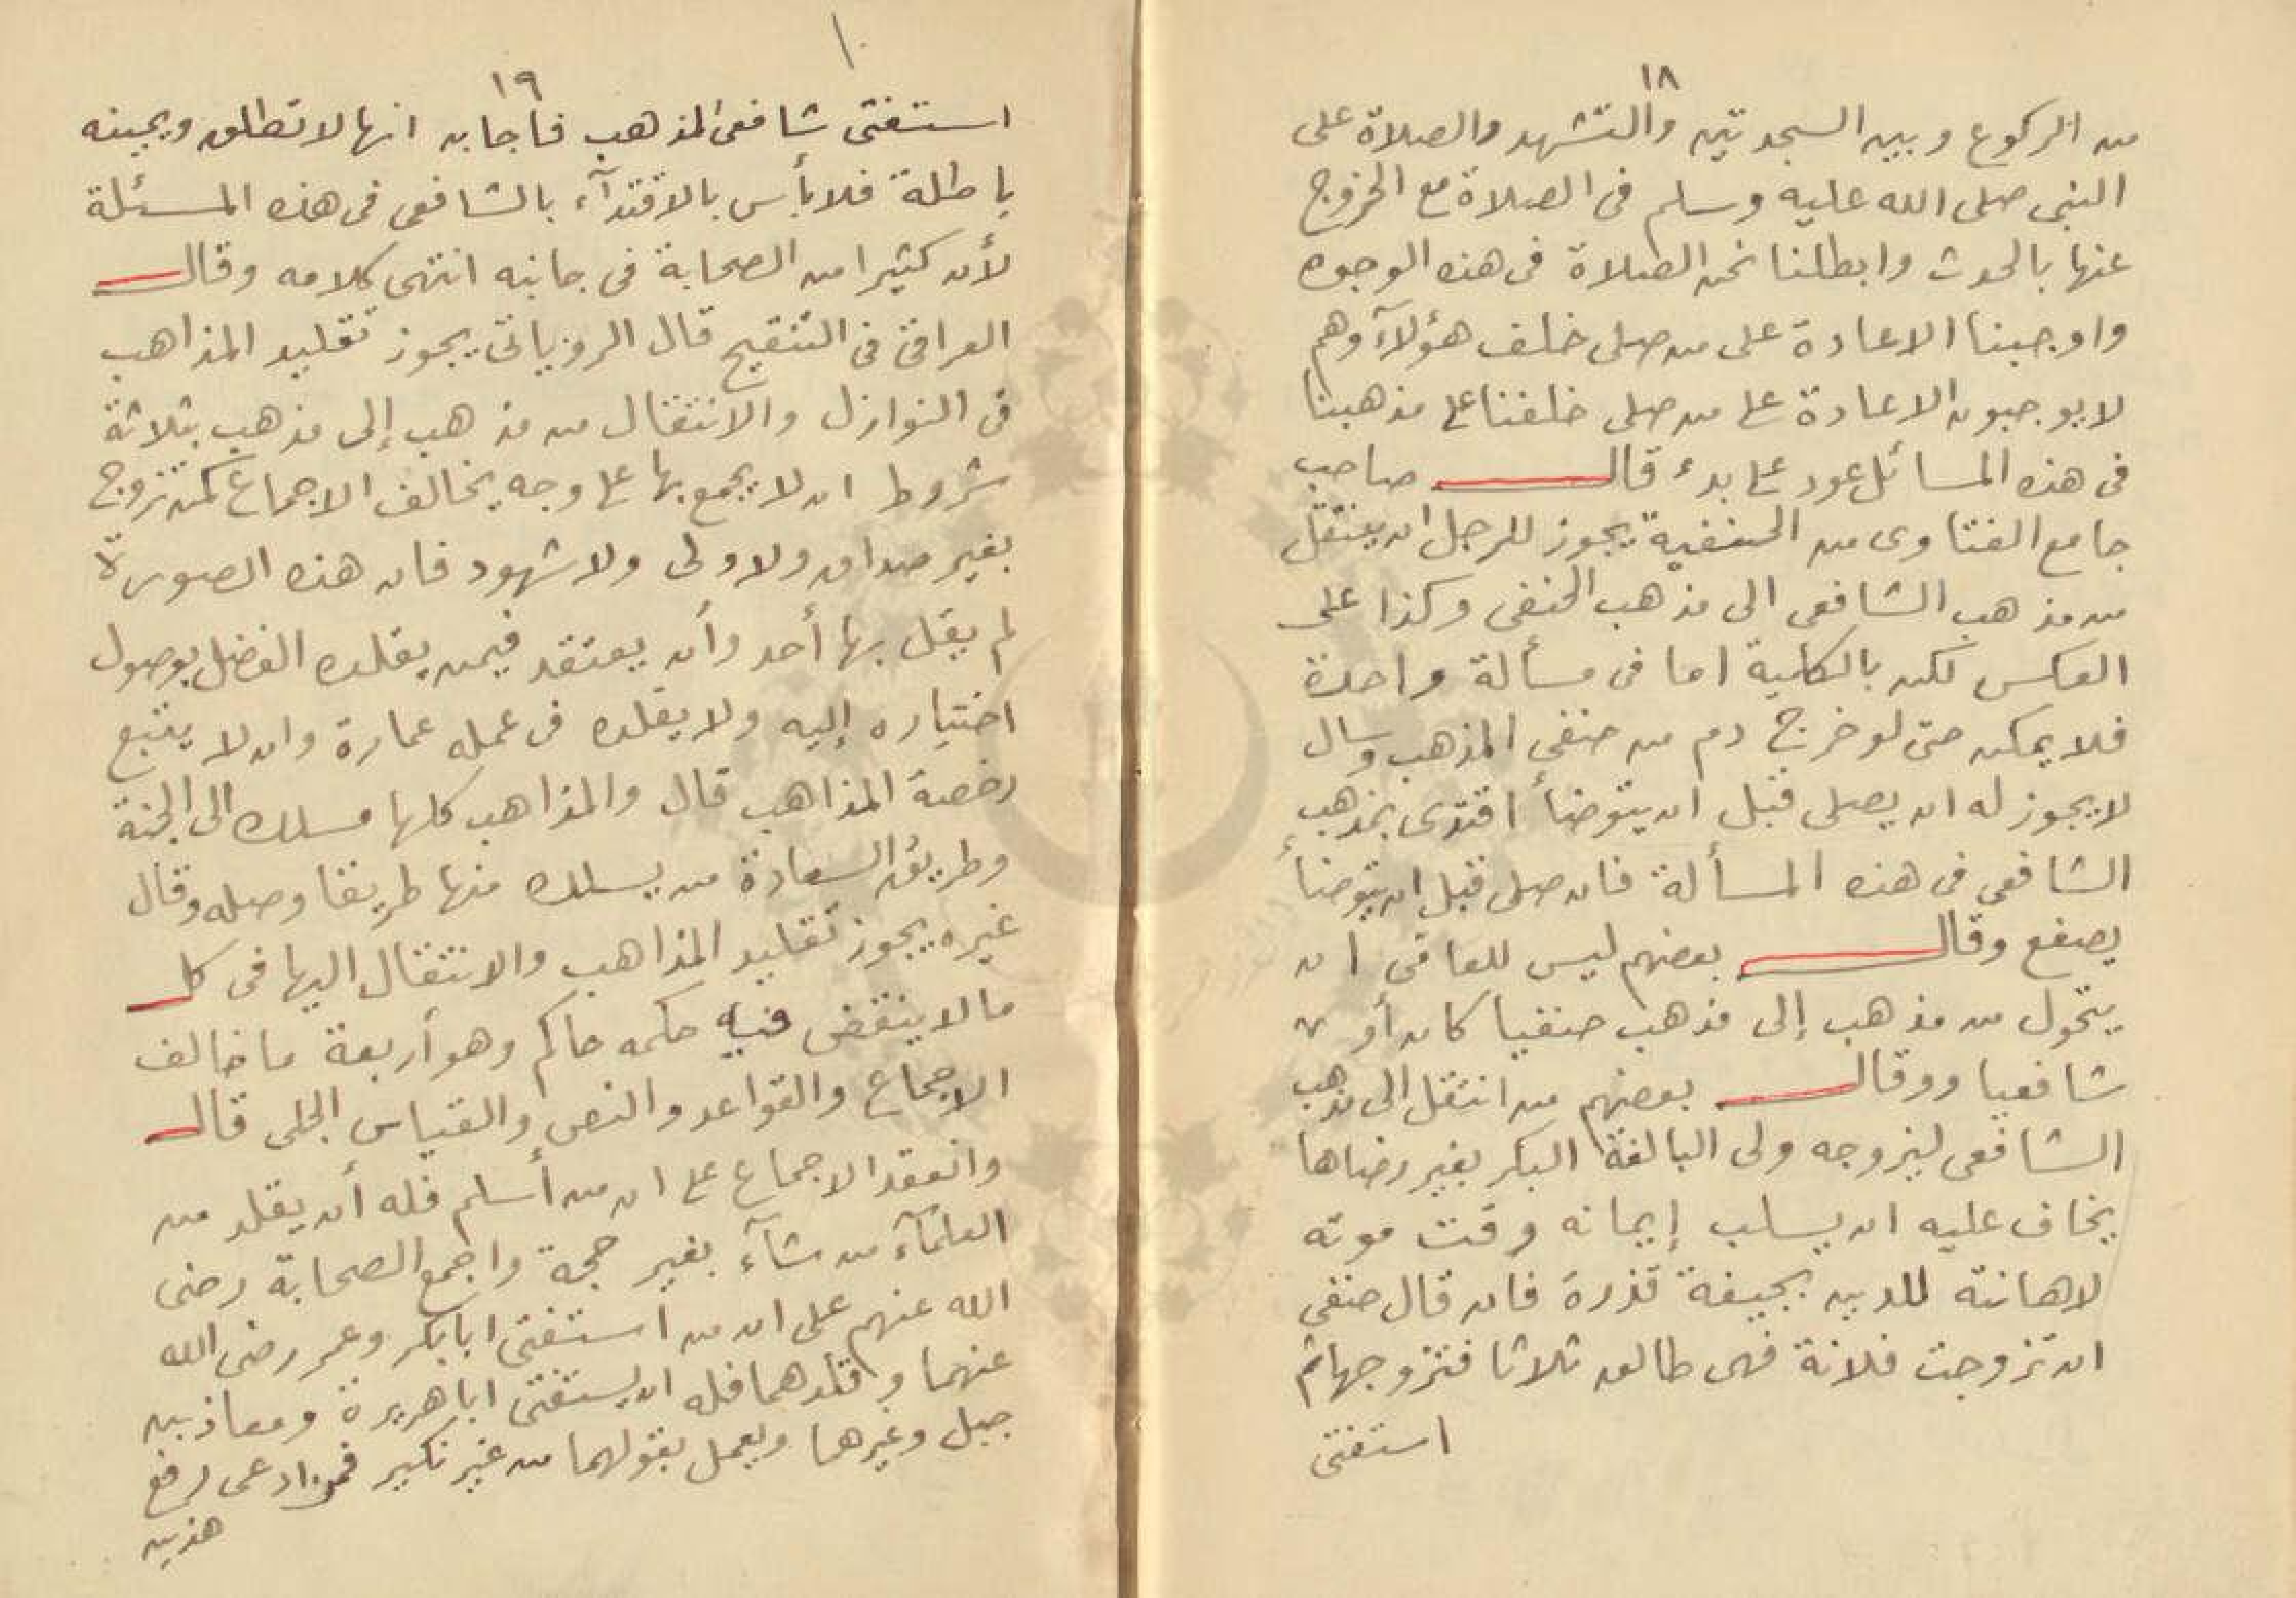 ١٨
من الركوع وبين السجدتين والتشهد والصلاة على
النبى صلى الله عليه وسلم فى الصلاة مع الخروج
عنها بالحدث وابطلنا نحن الصلاة فى هذه الوجوه
واوجبنا الاعادة على من صلى خلف هؤلآء وهم
لا يوجبون الاعادة على من صلى خلفنا على مذهبنا
فى هذه المسائل عود على بدء قال صاحب
جامع الفتاوى من الحنفية يجوز للرجل ان ينتقل
من مذهب الشافعى الى مذهب الحنفى وكذا على
العكس لكن بالكلية اما فى مسألة واحدة
فلا يمكن حتى لو خرج دم من حنفى المذهب وسال
لا يجوز له ان يصلى قبل ان يتوضأ اقتدى بمذهب
الشافعى فى هذه المسألة فان صلى قبل ان يتوضأ
يصفع وقال بعضهم ليس للعامى ان
يتحول من مذهب إلى مذهب حنفيا كان أو
شافعيا ووقال بعضهم من انتقل الى مذهب
الشافعى ليزوجه ولى البالغة البكر بغير رضاها
يخاف عليه ان يسلب إيمانه وقت موته
لاهانته للدين بجيفة قذرة فان قال حنفى
ان تزوجت فلانة فهى طالق ثلاثا فتزوجها ثم
استفتى
١٠
١٩
استفتى شافعى المذهب فأجاب انها لا تطلق ويمينه
باطلة فلا بأس بالاقتدآء بالشافعى فى هذه المسئلة
لأن كثيرا من الصحابة فى جانبه انتهى كلامه وقال
العراقى فى التنقيح قال الرويانى يجوز تقليد المذاهب
فى النوازل والانتقال من مذهب إلى مذهب بثلاثة
شروط ان لا يجمع بها على وجه يخالف الاجماع كمن تزوج
بغير صداق ولا ولى ولا شهود فان هذه الصورة
لم يقل بها أحد وأن يعتقد فيمن يقلده الفضل بوصول
اختياره إليه ولا يقلده فى عمله عمارة وان لا يتتبع
رخصة المذاهب قال والمذاهب كلها مسلك الى الجنة
وطريق السعادة من يسلك منها طريقا وصله وقال
غيره يجوز تقليد المذاهب والانتقال اليها فى كل
مالا ينقض فيه حكمه حاكم وهو أربعة ما خالف
الاجماع والقواعد والنص والقياس الجلى قال
وانعقد الاجماع على ان من أسلم فله أن يقلد من
العلمآء من شآء بغير حجة واجمع الصحابة رضى
الله عنهم على ان من استفتى ابابكر وعمر رضى الله
عنهما وقلدهما فله ان يستفتى ابا هريرة ومعاذ بن
جبل وغيرهما ويعمل بقولهما من غير نكير فمن ادعى رفع
هذين